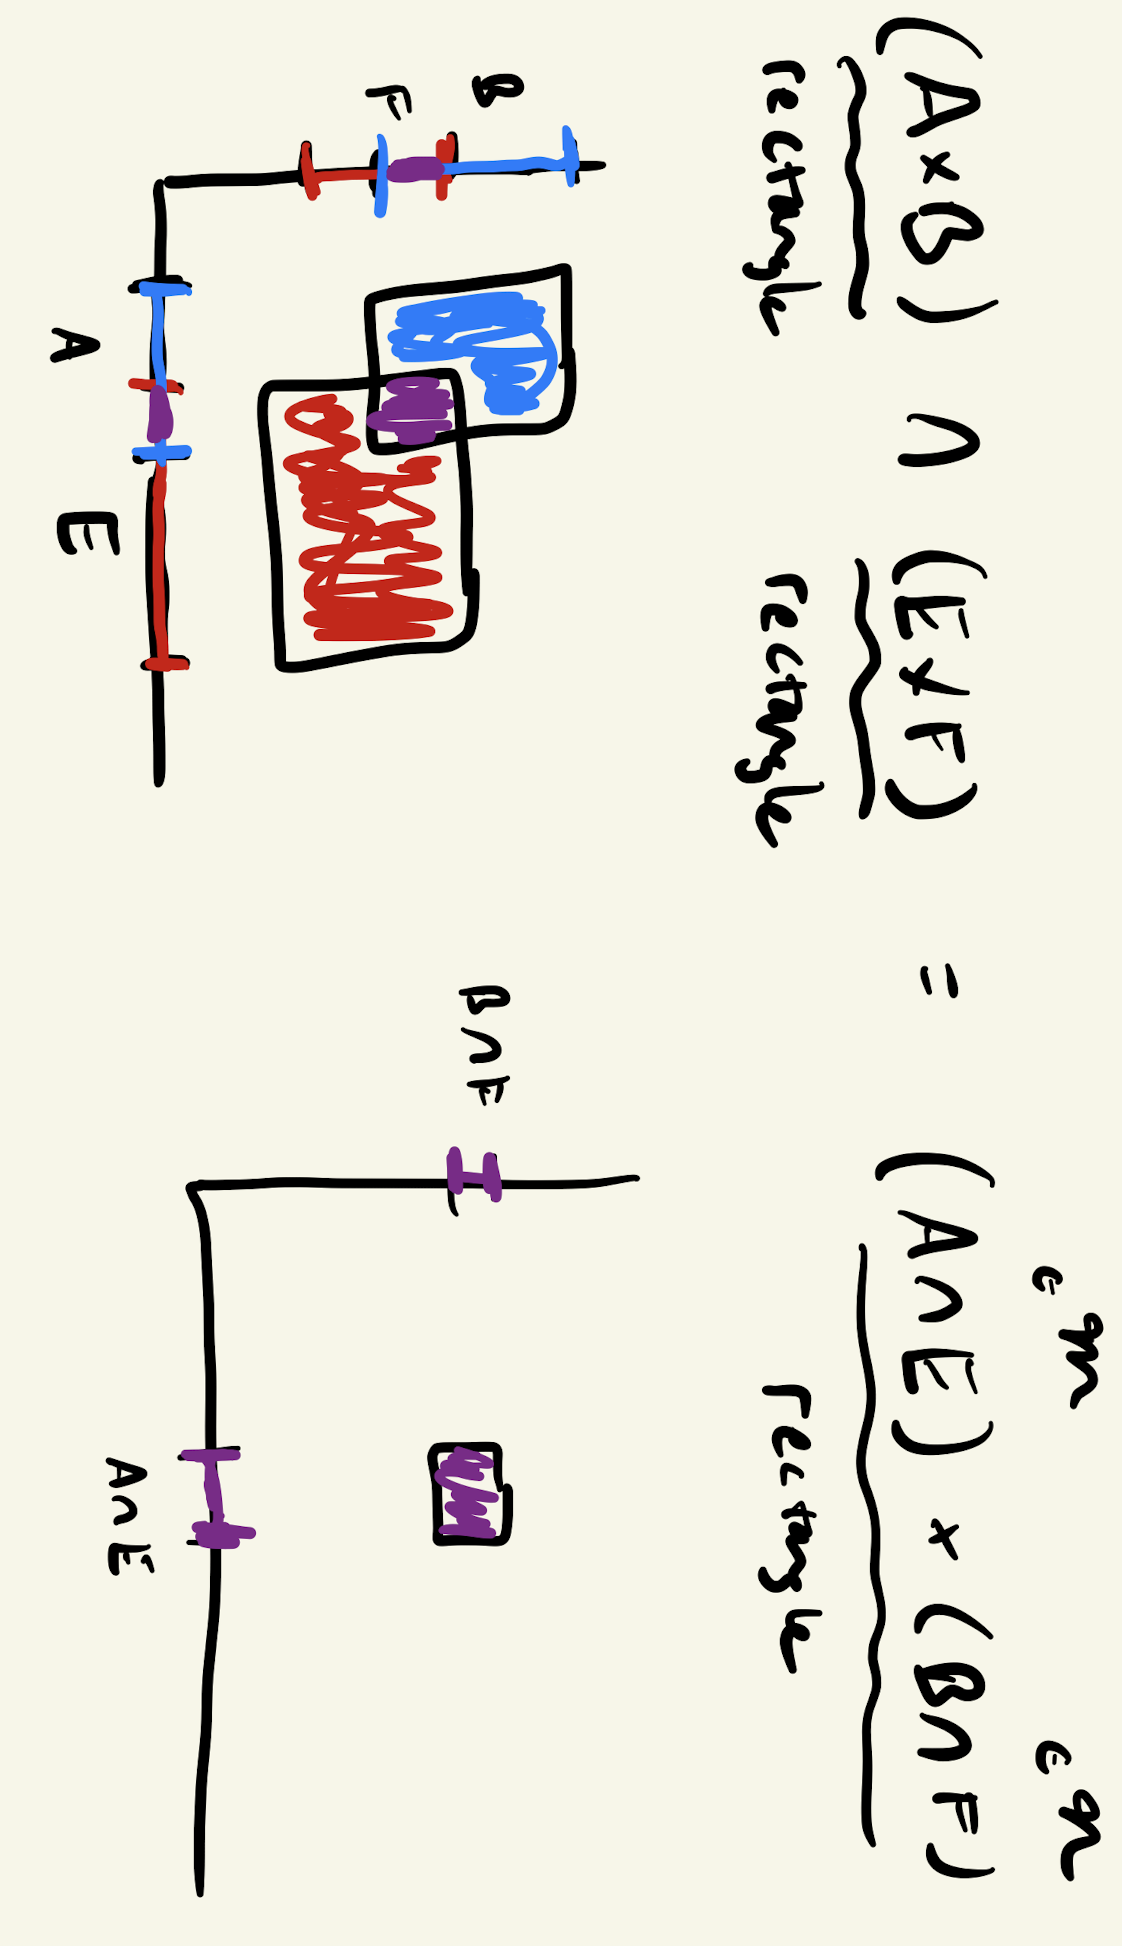 ∈ 𝔪 ∈ 𝔫
(A × B) ∩ (E × F) = (A ∩ E) × (B ∩ F)
rectangle rectangle rectangle
B
F
B ∩ F
A E
A ∩ E